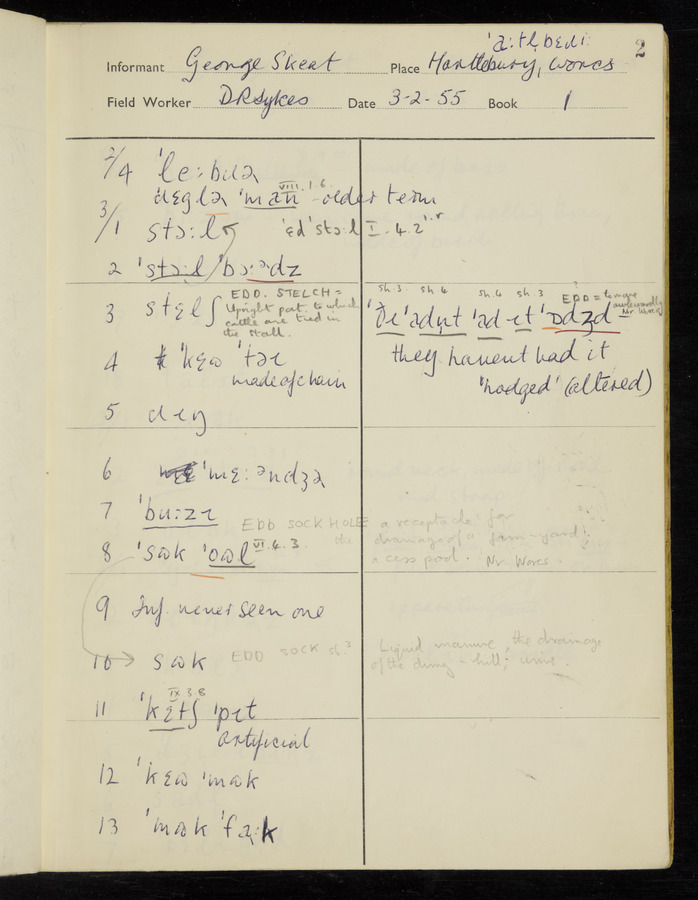 'a:tl̩bɛɹi:
2
Informant George Skeat Place Hartlebury, Worcs
Field Worker D R Sykes Date 3-2-55 Book 1
2/4 'le:bɹə
VIII. 1.6.
'ɹɛglə 'man - older term
3/1 stɔ:l 'ɛd'stɔ:l I. 4. 2
2 'stɔ:l 'bɔ:ədz
3 stɛlʃ EDD. STELCH =
Upright post to which
cattle are tied in
the stall.
sh.3. sh.4 sh.4 sh.3 EDD = to move
awkwardly
Nr. Worcs
'ðɛ 'adn̩t 'ad ɪt 'ɒdʒd
they haven't had it
'hodged' (altered)
4 'kɛɷ 'təɪ
made of chain
5
6 'mɛ:əndʒə
7 'bu:zɪ
8 'sɷk 'oɷl VI. 4. 3. EDD SOCK HOLE a receptacle for
the drainage of a farm-yard;
a cess pool. Nr. Worcs.
9 Inf. never seen one
10 → sɷk EDD SOCK sb.3 Liquid manure, the drainage
of the dung-hill; urine.
IX 3.8
11 'kɛtʃ 'pɪt
artificial
12 'kɛɷ 'mɷk
13 'mɷk 'fa:k